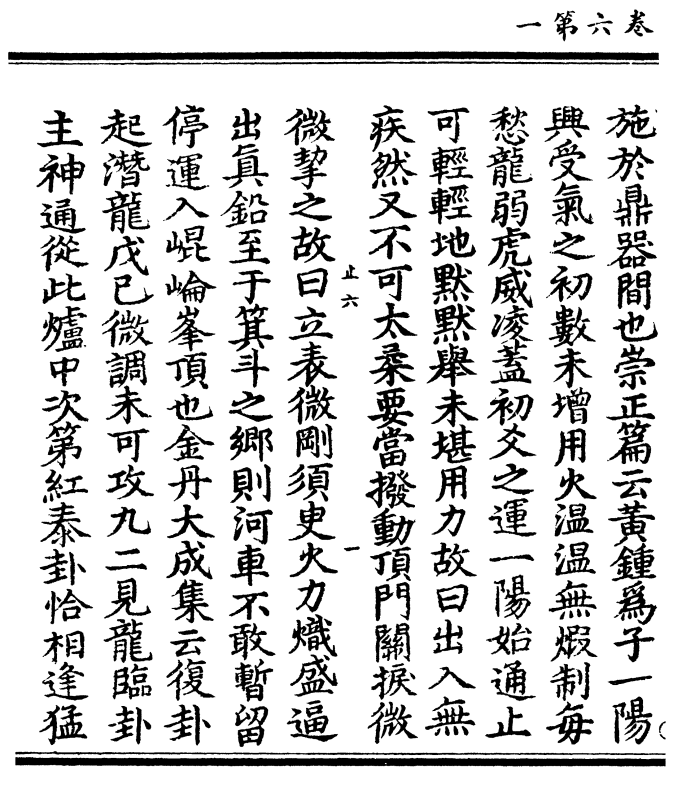 卷六第一
施於鼎器間也崇正篇云黃鍾爲子一陽
興受氣之初數未增用火温温無煆制每
愁龍弱虎威凌蓋初爻之運一陽始通止
可輕輕地默默舉未堪用力故曰出入無
疾然又不可太柔要當撥動頂門關捩微
止六
一
微挚之故曰立表微剛須史火力熾盛逼
出眞鉛至于箕斗之鄉則河車不敢暫留
停運入崐崘峯頂也金丹大成集云復卦
起潛龍戊巳微調未可攻九二見龍臨卦
主神通從此爐中次第紅泰卦恰相逢猛